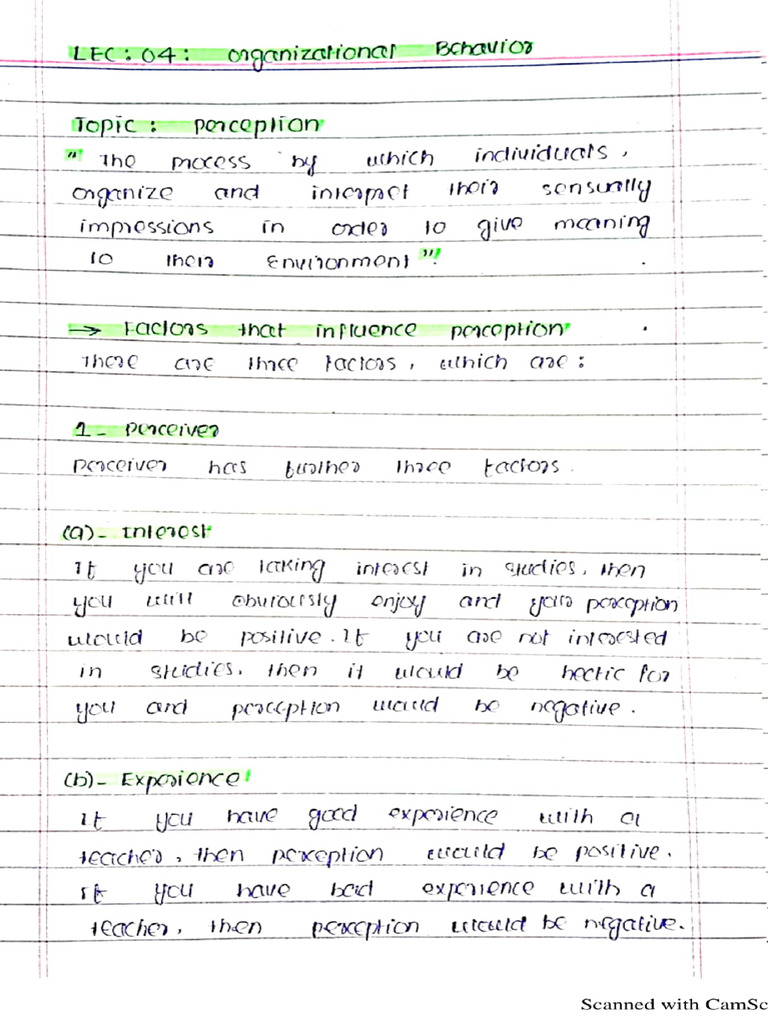 LEC: 04: Organizational Behavior
Topic: perception
" The process by which individuals,
organize and interpret their sensually
impressions in order to give meaning
to their Environment".
→ Factors that influence perception
There are three factors, which are:
1- perceiver
perceiver has further three factors.
(a)- Interest
If you are taking interest in studies, then
you will obviously enjoy and your perception
would be positive. If you are not interested
in studies, then it would be hectic for
you and perception would be negative.
(b)- Experience
If you have good experience with a
teacher, then perception would be positive.
If you have bad experience with a
teacher, then perception would be negative.
Scanned with CamSc